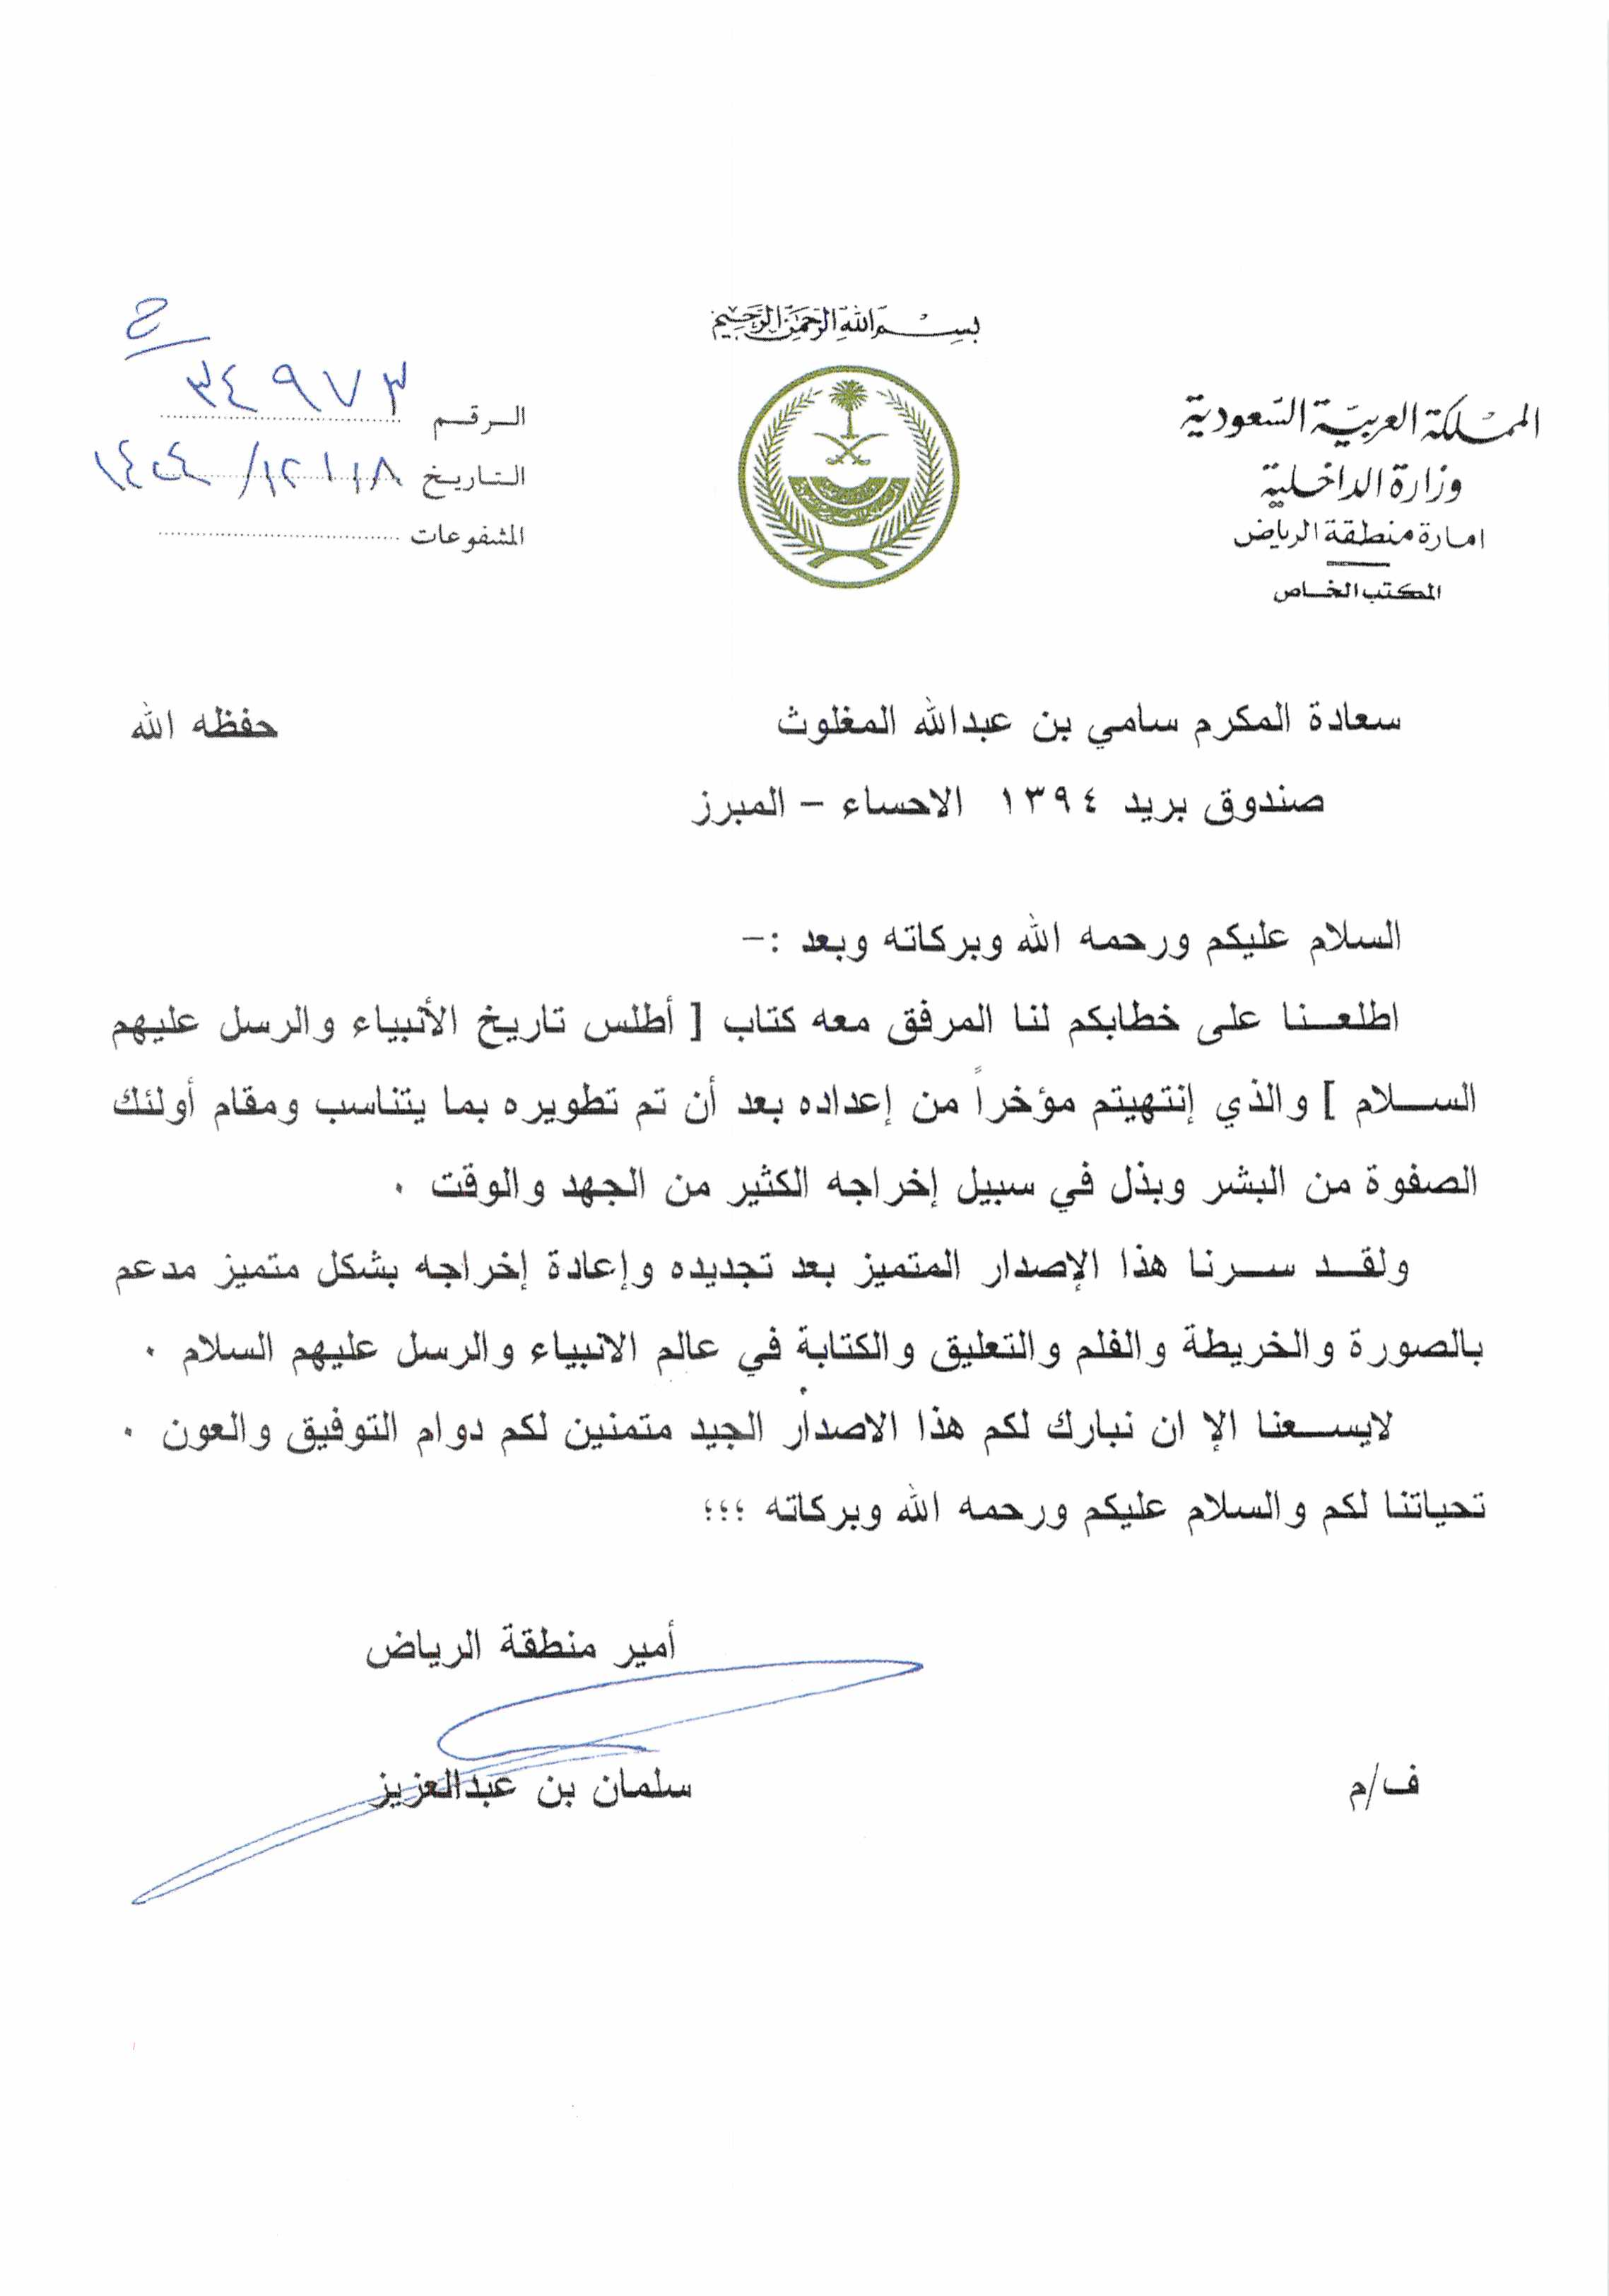 بسم الله الرحمن الرحيم
المملكة العربية السعودية
وزارة الداخلية
امارة منطقة الرياض
المكتب الخاص
الرقم ٣٤٩٧٣
التاريخ
المشفوعات
سعادة المكرم سامي بن عبدالله المغلوث حفظه الله
صندوق بريد ١٣٩٤ الاحساء – المبرز
السلام عليكم ورحمه الله وبركاته وبعد :–
اطلعنا على خطابكم لنا المرفق معه كتاب [ أطلس تاريخ الأنبياء والرسل عليهم
السلام ] والذي إنتهيتم مؤخراً من إعداده بعد أن تم تطويره بما يتناسب ومقام أولئك
الصفوة من البشر وبذل في سبيل إخراجه الكثير من الجهد والوقت ٠
ولقد سرنا هذا الإصدار المتميز بعد تجديده وإعادة إخراجه بشكل متميز مدعم
بالصورة والخريطة والفلم والتعليق والكتابة في عالم الانبياء والرسل عليهم السلام ٠
لايسعنا الإ ان نبارك لكم هذا الاصدار الجيد متمنين لكم دوام التوفيق والعون ٠
تحياتنا لكم والسلام عليكم ورحمه الله وبركاته ؛؛؛
أمير منطقة الرياض
سلمان بن عبدالعزيز
ف/م